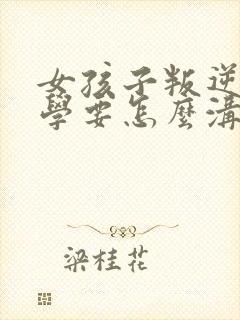 女孩子叛逆
學要怎麼溝
梁桂花